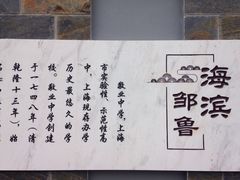 海滨
邹鲁
敬业中学，上海
市实验性、示范性高
中，上海现存办学
历史最悠久的学
校。敬业中学创建
于一七四八年（清
乾隆十三年），始